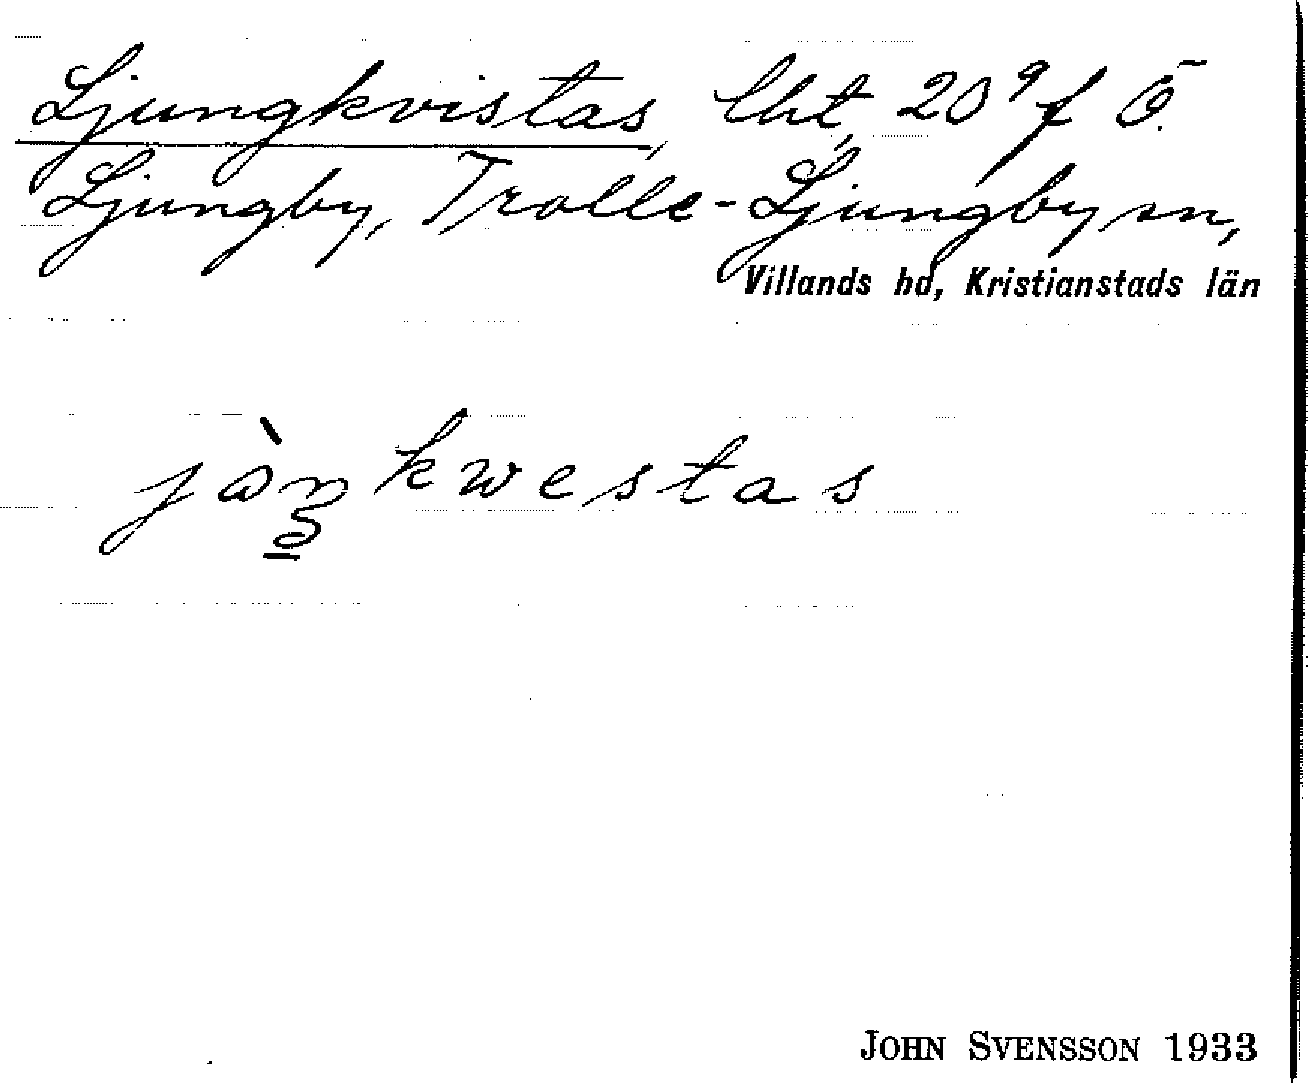 Ljungkvistas, lht, 20⁹ f Ö.
Ljungby, Trolle-Ljungby sn,
Villands hd, Kristianstads län
jὼŋkwestas
JOHN SVENSSON 1933